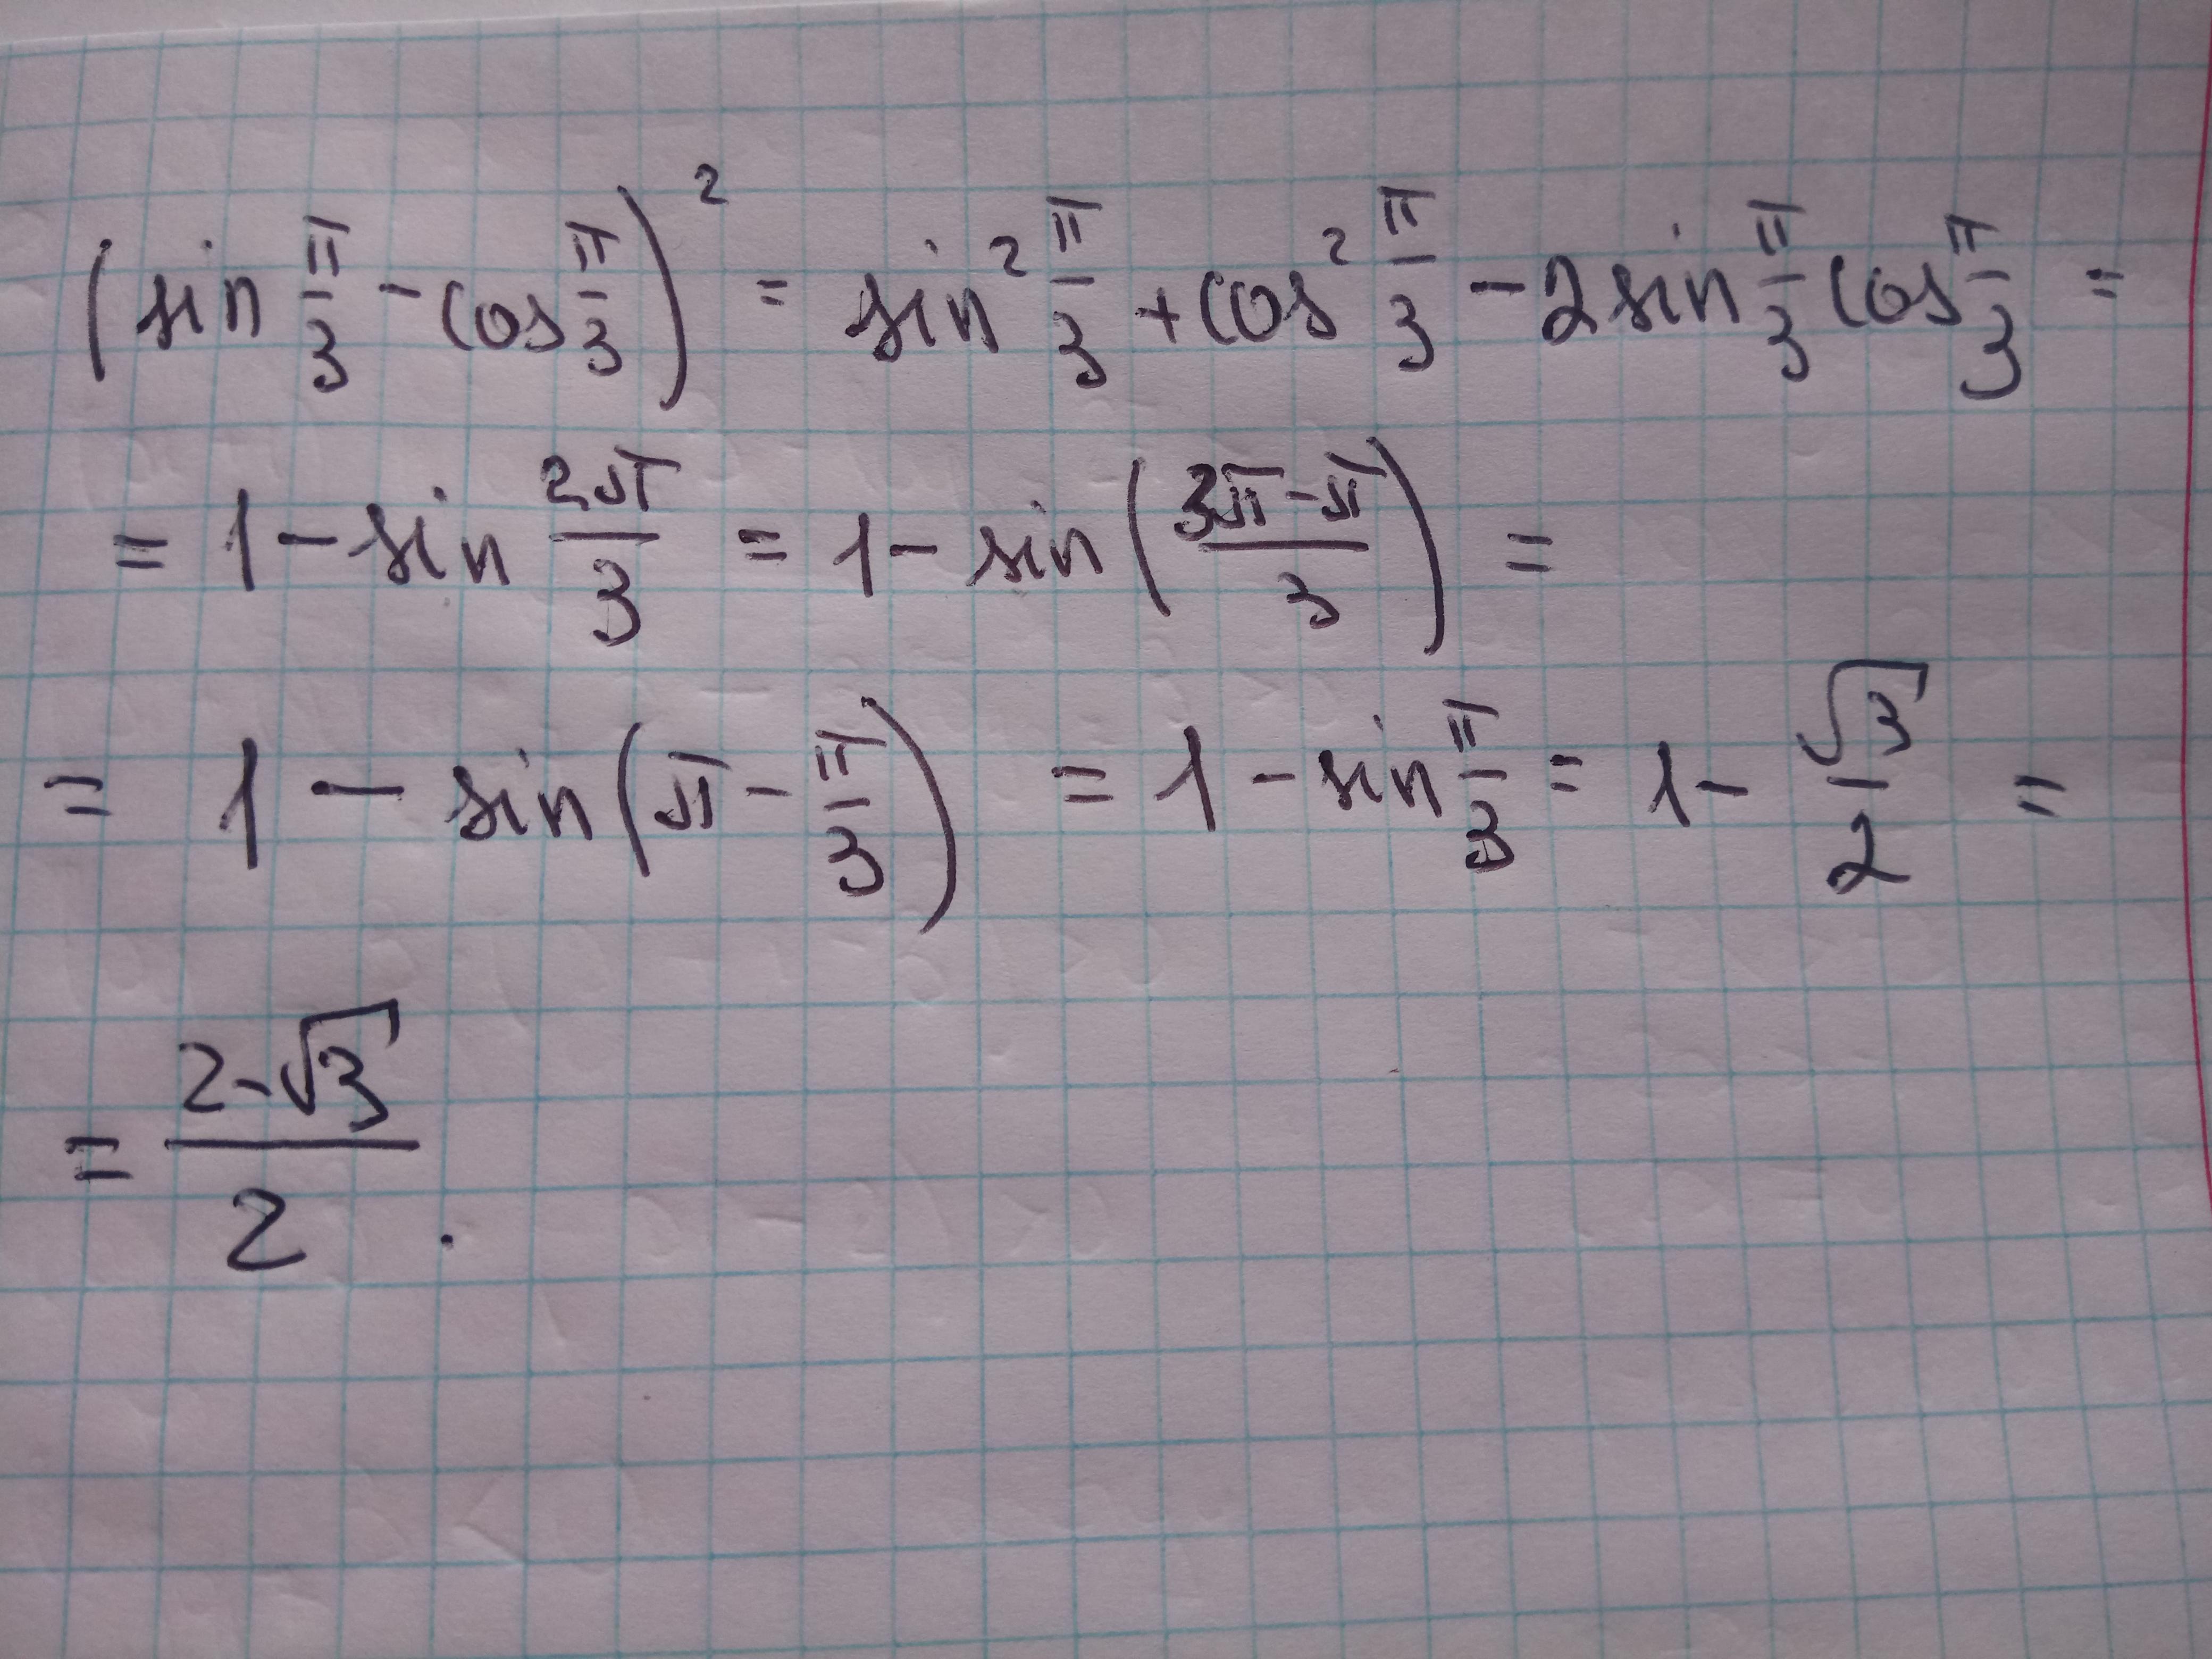 (sin π/3 - cos π/3)² = sin² π/3 + cos² π/3 - 2 sin π/3 cos π/3 =
= 1 - sin 2π/3 = 1 - sin (3π-π/3) =
= 1 - sin (π - π/3) = 1 - sin π/3 = 1 - √3/2 =
= 2-√3/2 .